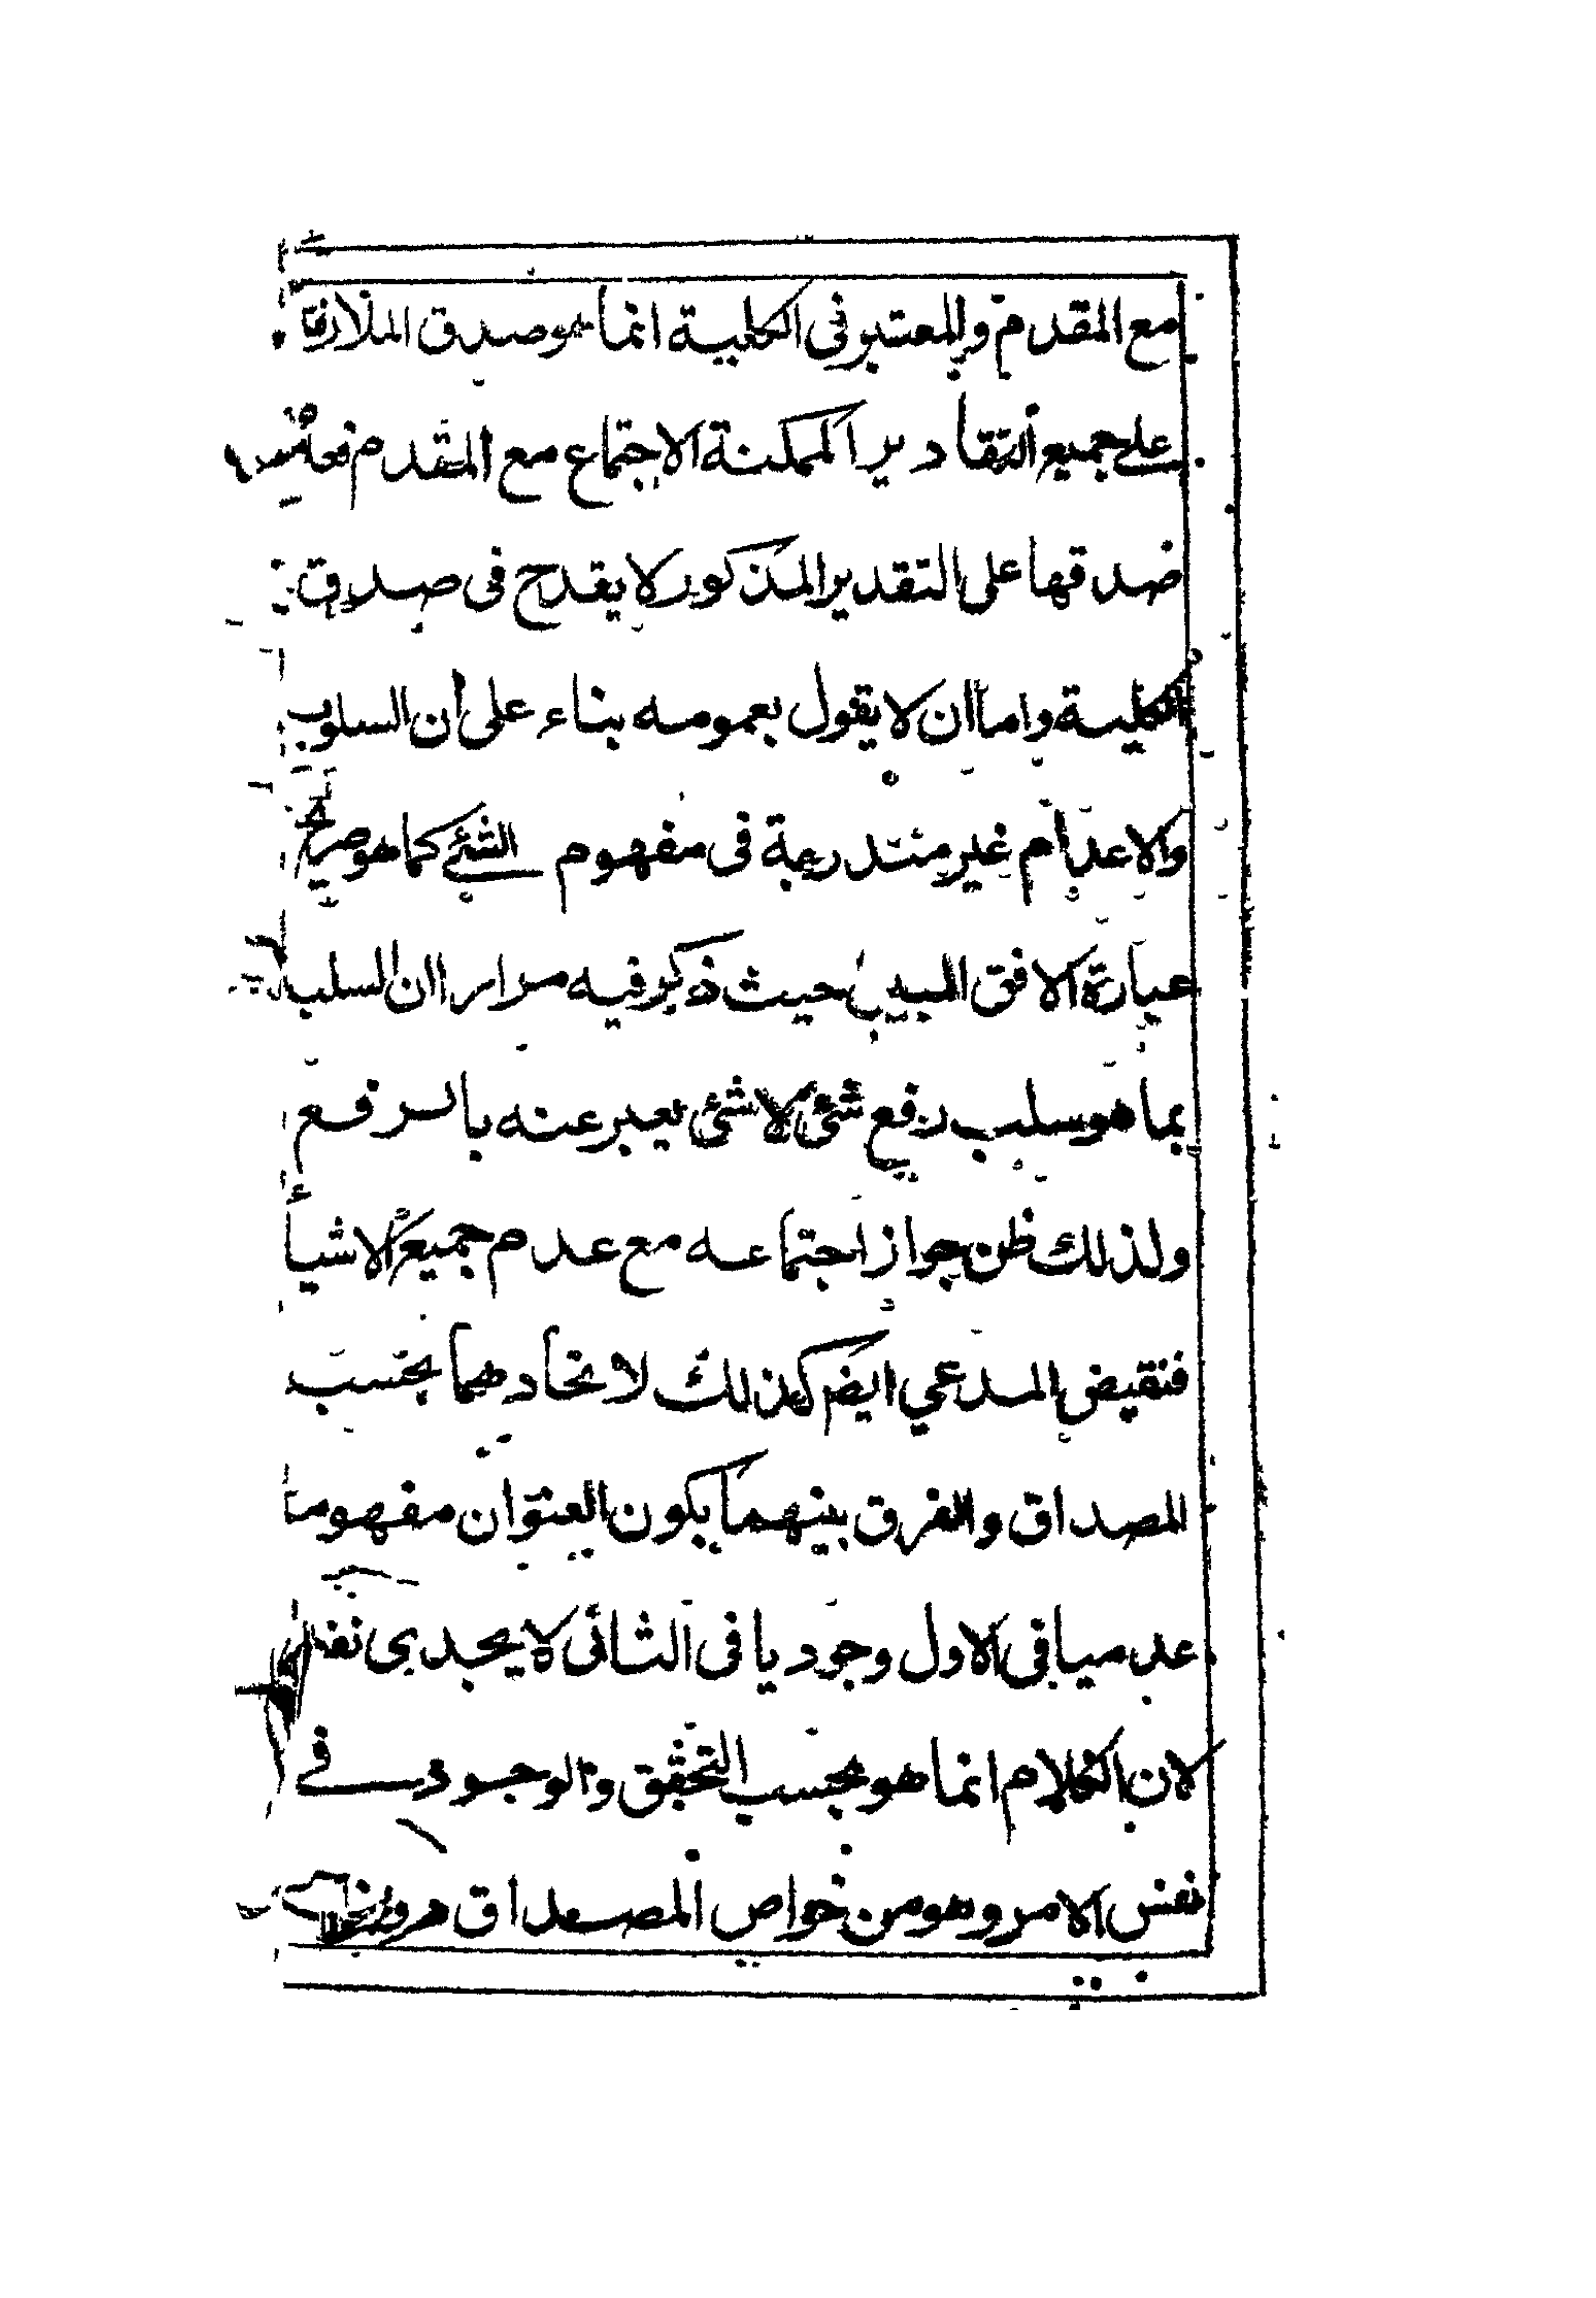 مع المقدم والمعتبر فى الكلية انما هو صدق الملازمة
على جميع التقادير الممكنة الاجتماع مع المقدم فعدم
صدقها على التقدير المذكور لا يقدح فى صدق
الكلية واما ان لا يقول بعمومه بناء على أن السلوب
والاعدام غير مندرجة فى مفهوم الشئ كما هو صريح
عبارة الافق المبين حيث ذكر فيه مرارا ان السلب
بما هو سلب رفع شئ لا شئ يعبر عنه بالرفع
ولذلك ظن جواز اجتماعه مع عدم جميع الاشياء
فنقيض المدعي ايضم كذلك لاتحادهما بحسب
المصداق والفرق بينهما بكون العنوان مفهوما
عدميا فى الاول وجوديا فى الثانى لا يجدى نفعا
لان الكلام انما هو بحسب التحقق والوجود فے
نفس الامر وهو من خواص المصداق